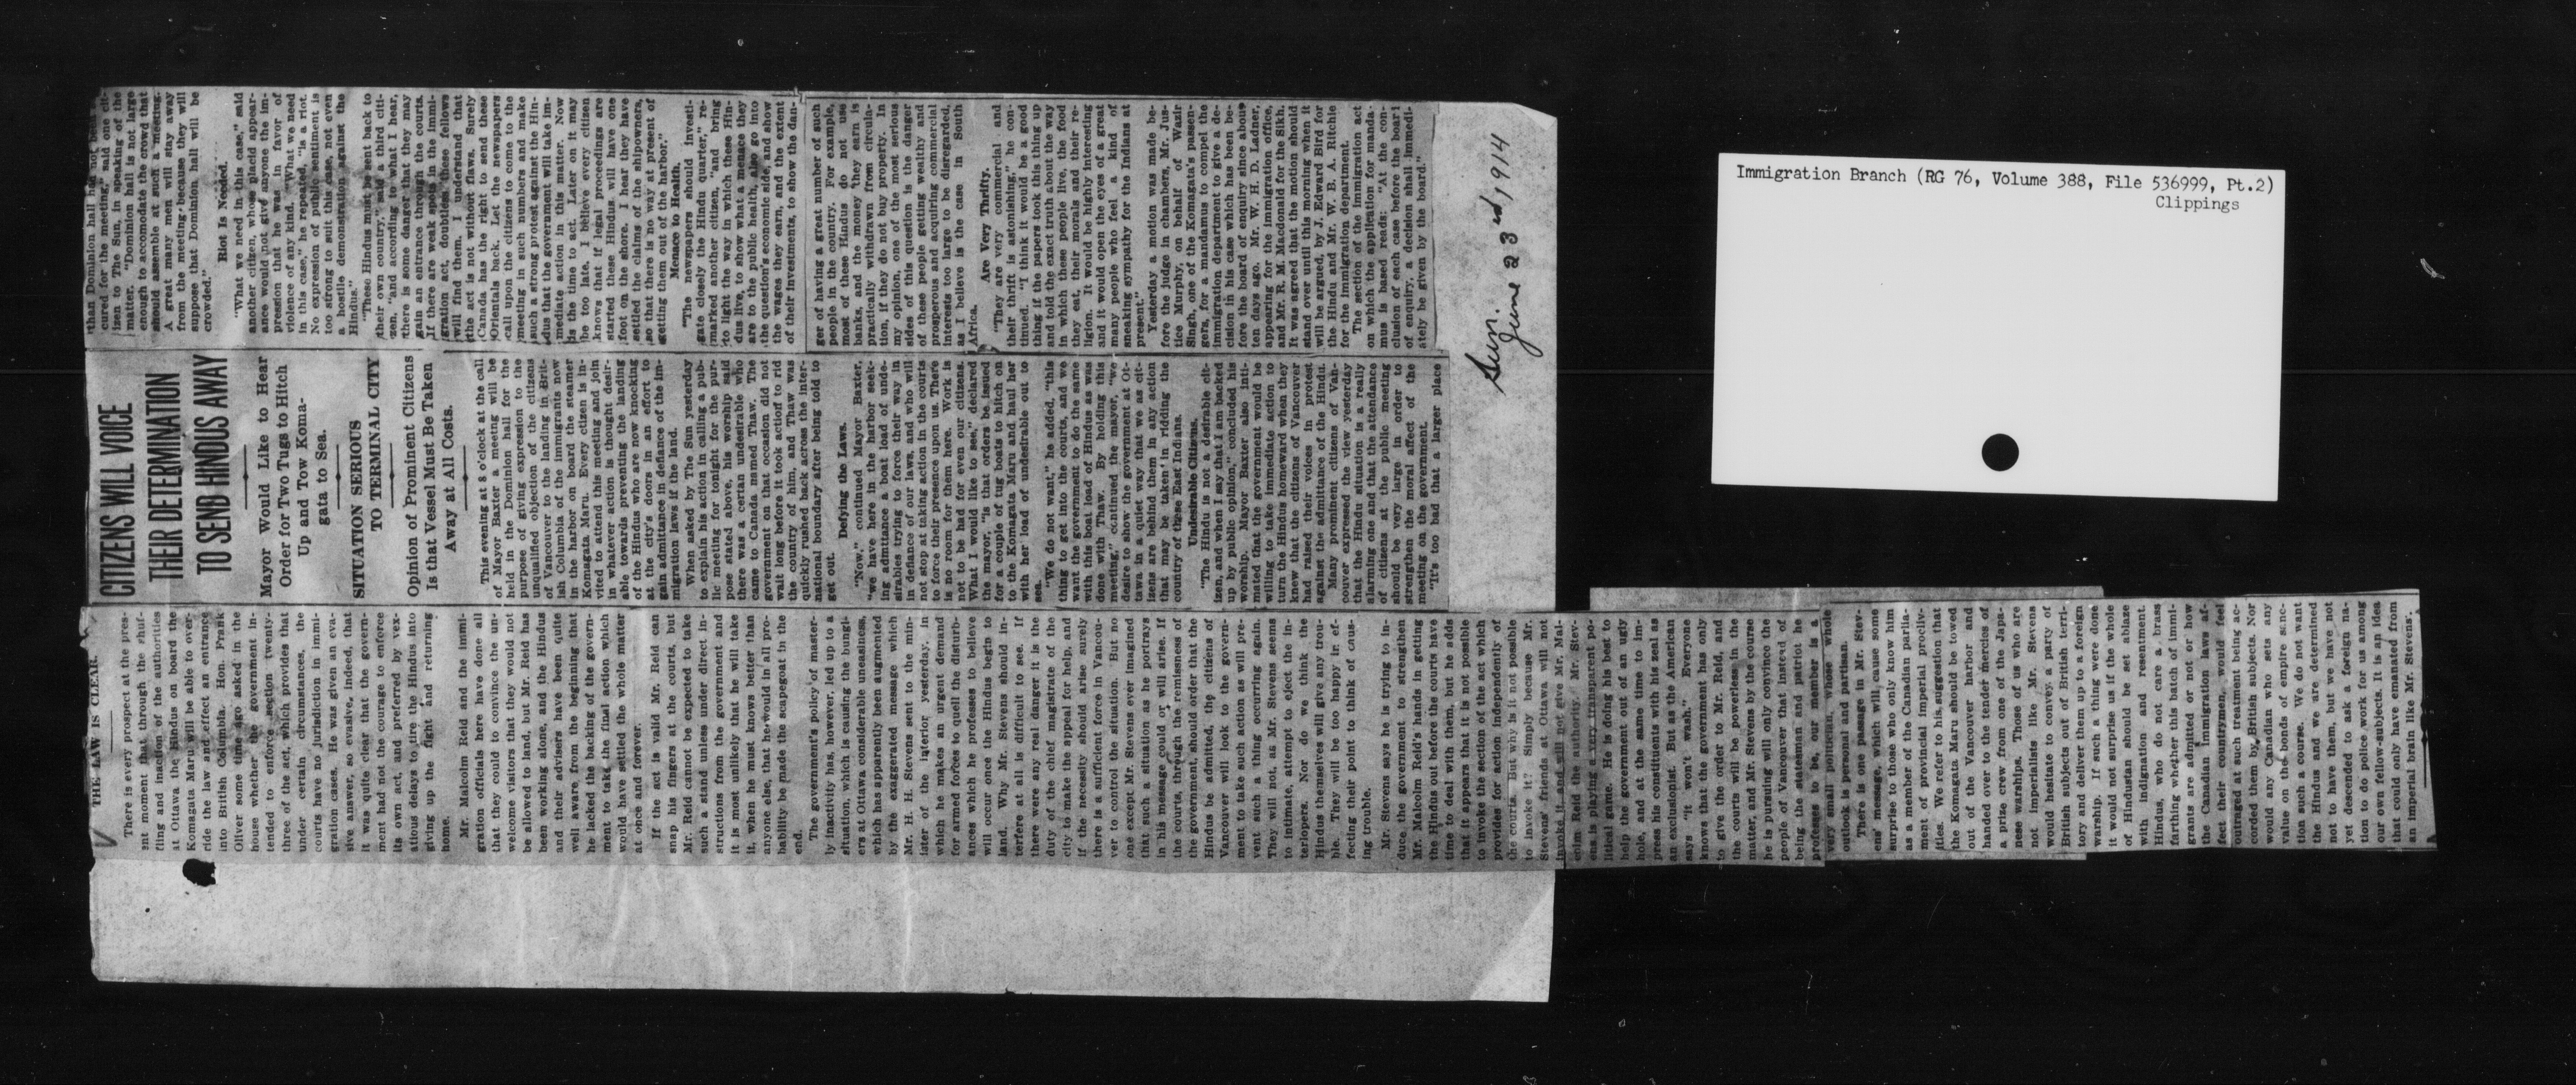 Immigration Branch (RG 76, Volume 388, File 536999, Pt.2)
Clippings
Sun.
June 23rd, 1914
CITIZENS WILL VOICE
THEIR DETERMINATION
TO SEND HINDUS AWAY
Mayor Would Like to Hear
Order for Two Tugs to Hitch
Up and Tow Koma-
gata to Sea.
SITUATION SERIOUS
TO TERMINAL CITY
Opinion of Prominent Citizens
Is that Vessel Must Be Taken
Away at All Costs.
This evening at 8 o'clock at the call
of Mayor Baxter a meetng will be
held in the Dominion hall for the
purpose of giving expression to the
unqualified objection of the citizens
of Vancouver to the landing in Brit-
ish Columbia of the immigrants now
in the harbor on board the steamer
Komagata Maru. Every citizen is in-
vited to attend this meeting and join
in whatever action is thought desir-
able towards preventing the landing
of the Hindus who are now knocking
at the city's doors in an effort to
gain admittance in defiance of the im-
migration laws if the land.
When asked by The Sun yesterday
to explain his action in calling a pub-
lic meeting for tonight for the pur-
pose stated above, his worship said
there was a certian undesirable who
came to Canada named Thaw. The
government on that occasion did not
wait long before it took action to rid
the country of him, and Thaw was
quickly rushed back across the inter-
national boundary after being told to
get out.
Defying the Laws.
"Now," continued Mayor Baxter,
"we have here in the harbor seek-
ing admttance a boat load of unde-
sirables trying to force their way in
in defiance of our laws, and who will
not stop at taking action in the courts
to force their presence upon us. There
is no room for them here. Work is
not to be had for even our citizens.
What I would like to see," declared
the mayor, "is that orders be issued
for a couple of tug boats to hitch on
to the Komagata Maru and haul her
with her load of undesirable out to
sea.
"We do not want," he added, "this
thing to get into the courts, and we
want the government to do the same
with this boat load of Hindus as was
done with Thaw. By holding this
meeting," continued the mayor, "we
desire to show the government at Ot-
tawa in a quiet way that we as cit-
izens are behind them in any action
that may be taken in ridding the
country of these East Indians.
Undesirable Citizens.
"The Hindu is not a desirable cit-
izen, and when I say that I am backed
up by public opinion," concluded his
worship. Mayor Baxter also inti-
mated that the government would be
willing to take immediate action to
turn the Hindus homeward when they
knew that the citizens of Vancouver
had raised their voices in protest
against the admittance of the Hindu.
Many prominent citizens of Van-
couver expressed the view yesterday
that the Hindu situation is a really
alarming one and that the attendance
of citizens at the public meeting
should be very large in order to
strengthen the moral affect of the
meeting on the government.
"It's too bad that a larger place
than Dominion hall had not been
cured for the meeting," said one cit-
izen to The Sun, in speaking of the
matter. "Dominion hall is not large
enough to accomodate the crowd that
should assemble at such a meeting.
A great many men will stay away
from the meeting because they will
suppose that Dominion hall will be
crowded."
Riot Is Needed.
"What we need in this case," said
another citizen, whose placid appear-
ance would not give anyone the im-
pression that he was in favor of
violence of any kind. "What we need
in this case," he repeated, "is a riot.
No expression of public sentiment is
too strong to suit this case, not even
a hostile demonstration against the
Hindus."
"These Hindus must be sent back to
their own country," said a third citi-
zen, "and according to what I hear,
there is some danger that they may
gain an entrance through the courts.
If there are weak spots in the immi-
gration act, doubtless these fellows
will find them. I understand that
the act is not without flaws. Surely
Canada has the right to send these
Orientals back. Let the newspapers
call upon the citizens to come to the
meeting in such numbers and make
such a strong protest against the Hin-
dus that the government will take im-
mediate action in this matter. Now
is the time to act. Later on it may
be too late. I believe every citizen
knows that if legal proceedings are
started these Hindus will have one
foot on the shore. I hear they have
settled the claims of the shipowners,
so that there is no way at present of
getting them out of the harbor."
Menace to Health.
"The newspapers should investi-
gate closely the Hindu quarter," re-
marked another citizen, "and bring
to light the way in which these Hin-
dus live, to show what a menace they
are to the public health, also go into
the question's economic side, and show
the wages they earn, and the extent
of their investments, to show the dan-
ger of having a great number of such
people in the country. For example,
most of these Hindus do not use
banks, and the money they earn is
practically withdrawn from circula-
tion, if they do not buy property. In
my opinion, one of the most serious
sides of this question is the danger
of these people getting wealthy and
prosperous and acquiring commercial
interests too large to be disregarded,
as I believe is the case in South
Africa.
Are Very Thrifty.
"They are very commercial and
their thrift is astonishing," he con-
tinued. "I think it would be a good
thing if the papers took this thing up
and told the exact truth about the way
in which these people live, the food
they eat, their morals and their re-
ligion. It would be highly interesting
and it would open the eyes of a great
many people who feel a kind of
sneaking sympathy for the Indians at
present."
Yesterday a motion was made be-
fore the judge in chambers, Mr. Jus-
tice Murphy, on behalf of Wazir
Singh, one of the Komagata's passen-
gers, for a mandamus to compel the
immigration department to give a de-
cision in his case which has been be-
fore the board of enquiry since about
ten days ago. Mr. W. H. D. Ladner,
appearing for the immigration office,
and Mr. R. M. Macdonald for the Sikh.
It was agreed that the motion should
stand over until this morning when it
will be argued, by J. Edward Bird for
the Hindu and Mr. W. B. A. Ritchie
for the immigration department.
The section of the immigration act
on which the application for manda-
mus is based reads: "At the con-
clusion of each case before the board
of enquiry, a decision shall immedi-
ately be given by the board."
THE LAW IS CLEAR.
There is every prospect at the pres-
ent moment that through the shuf-
fling and inaction of the authorities
at Ottawa the Hindus on board the
Komagata Maru will be able to over-
ride the law and effect an entrance
into British Columbia. Hon. Frank
Oliver some time ago asked in the
house whether the government in-
tended to enforce section twenty-
three of the act, which provides that
under certain circumstances, the
courts have no jurisdiction in immi-
gration cases. He was given an eva-
sive answer, so evasive, indeed, that
it was quite clear that the govern-
ment had not the courage to enforce
its own act, and preferred by vex-
atious delays to tire the Hindus into
giving up the fight and returning
home.
Mr. Malcolm Reid and the immi-
gration officials here have done all
that they could to convince the un-
welcome visitors that they would not
be allowed to land, but Mr. Reid has
been working alone, and the Hindus
and their advisers have been quite
well aware from the beginning that
he lacked the backing of the govern-
ment to take the final action which
would have settled the whole matter
at once and forever.
If the act is valid Mr. Reid can
snap his fingers at the courts, but
Mr. Reid cannot be expected to take
such a stand unless under direct in-
structions from the government and
it is most unlikely that he will take
it, when he must knows better than
anyone else, that he would in all pro-
bability be made the scapegoat in the
end.
The government's policy of master-
ly inactivity has, however, led up to a
situation, which is causing the bungl-
ers at Ottawa considerable uneasiness,
which has apparently been augmented
by the exaggerated message which
Mr. H. H. Stevens sent to the min-
ister of the interior yesterday, in
which he makes an urgent demand
for armed forces to quell the disturb-
ances which he professes to believe
will occur once the Hindus begin to
land. Why Mr. Stevens should in-
terfere at all is difficult to see. If
there were any real danger it is the
duty of the chief magistrate of the
city to make the appeal for help, and
if the necessity should arise surely
there is a sufficient force in Vancou-
ver to control the situation. But no
one except Mr. Stevens ever imagined
that such a situation as he portrays
in his message could or will arise. If
the courts, through the remissness of
the government, should order that the
Hindus be admitted, the citizens of
Vancouver will look to the govern-
ment to take such action as will pre-
vent such a thing occurring again.
They will not, as Mr. Stevens seems
to intimate, attempt to eject the in-
terlopers. Nor do we think the
Hindus themselves will give any trou-
ble. They will be too happy in ef-
fecting their point to think of caus-
ing trouble.
Mr. Stevens says he is trying to in-
duce the government to strengthen
Mr. Malcolm Reid's hands in getting
the Hindus out before the courts have
time to deal with them, but he adds
that it appears that it is not possible
to invoke the section of the act which
provides for action independently of
the courts. But why is it not possible
to invoke it? Simply because Mr.
Stevens' friends at Ottawa will not
invoke it and will not give Mr. Mal-
colm Reid the authority. Mr. Stev-
ens is playing a very transparent po-
litical game. He is doing his best to
help the government out of an ugly
hole, and at the same time to im-
press his constituents with his zeal as
an exclusionist. But as the American
says "it won't wash." Everyone
knows that the government has only
to give the order to Mr. Reid, and
the courts will be powerless in the
matter, and Mr. Stevens by the course
he is pursuing will only convince the
people of Vancouver that instead of
being the statesman and patriot he
professes to be, our member is a
very small politician, whose whole
outlook is personal and partisan.
There is one passage in Mr. Stev-
ens' message, which will cause some
surprise to those who only know him
as a member of the Canadian parlia-
ment of provincial imperial procliv-
ities. We refer to his suggestion that
the Komagata Maru should be towed
out of the Vancouver harbor and
handed over to the tender mercies of
a prize crew from one of the Japa-
nese warships. Those of us who are
not imperialists like Mr. Stevens
would hesitate to convey a party of
British subjects out of British terri-
tory and deliver them up to a foreign
warship. If such a thing were done
it would not surprise us if the whole
of Hindustan should be set ablaze
with indignation and resentment.
Hindus, who do not care a brass
farthing whether this batch of immi-
grants are admitted or not or how
the Canadian immigration laws af-
fect their countrymen, would feel
outraged at such treatment being ac-
corded them by British subjects. Nor
would any Canadian who sets any
value on the bonds of empire sanc-
tion such a course. We do not want
the Hindus and we are determined
not to have them, but we have not
yet descended to ask a foreign na-
tion to do police work for us among
our own fellow-subjects. It is an idea
that could only have emanated from
an imperial brain like Mr. Stevens'.